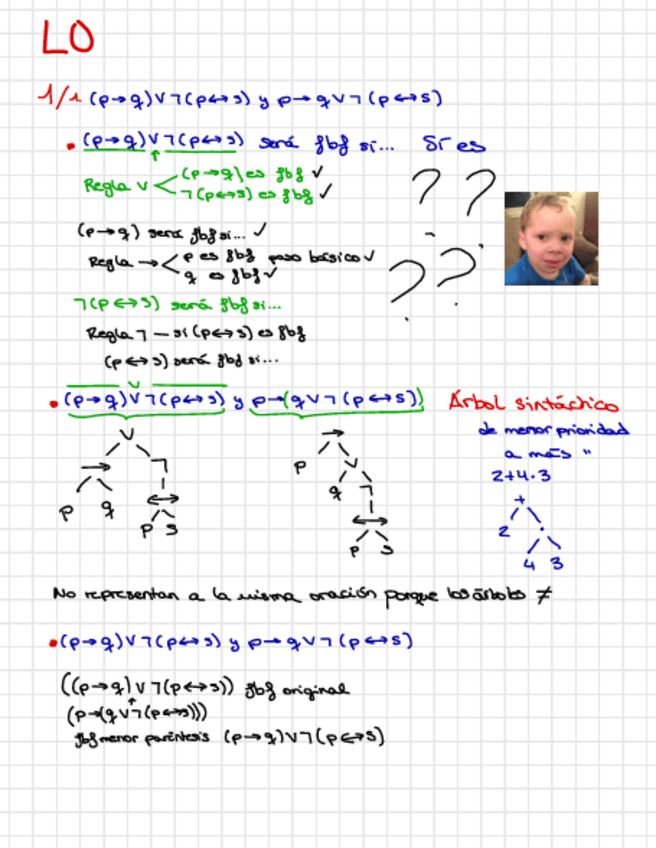 L0
1/1 (p→q)∨¬(p↔s) y p→q∨¬(p↔s)
• (p→q)∨¬(p↔s) será fbf si... Sí es
Regla ∨ < (p→q) es fbf ✓
¬(p↔s) es fbf ✓
? ?
(p→q) será fbf si... ✓
Regla → < p es fbf paso básico ✓
q es fbf ✓
? ?
¬(p↔s) será fbf si...
Regla ¬ — si (p↔s) es fbf
(p↔s) será fbf si...
• (p→q)∨¬(p↔s) y p→(q∨¬(p↔s)) Árbol sintáctico
de menor prioridad
a más "
2+4·3
∨ → +
→ ¬ p ∨ 2 ·
p q ↔ q ¬ 4 3
p s ↔
p s
No representan a la misma oración porque los árboles ≠
• (p→q)∨¬(p↔s) y p→q∨¬(p↔s)
((p→q)∨¬(p↔s)) fbf original
(p→(q∨¬(p↔s)))
fbf menor paréntesis (p→q)∨¬(p↔s)